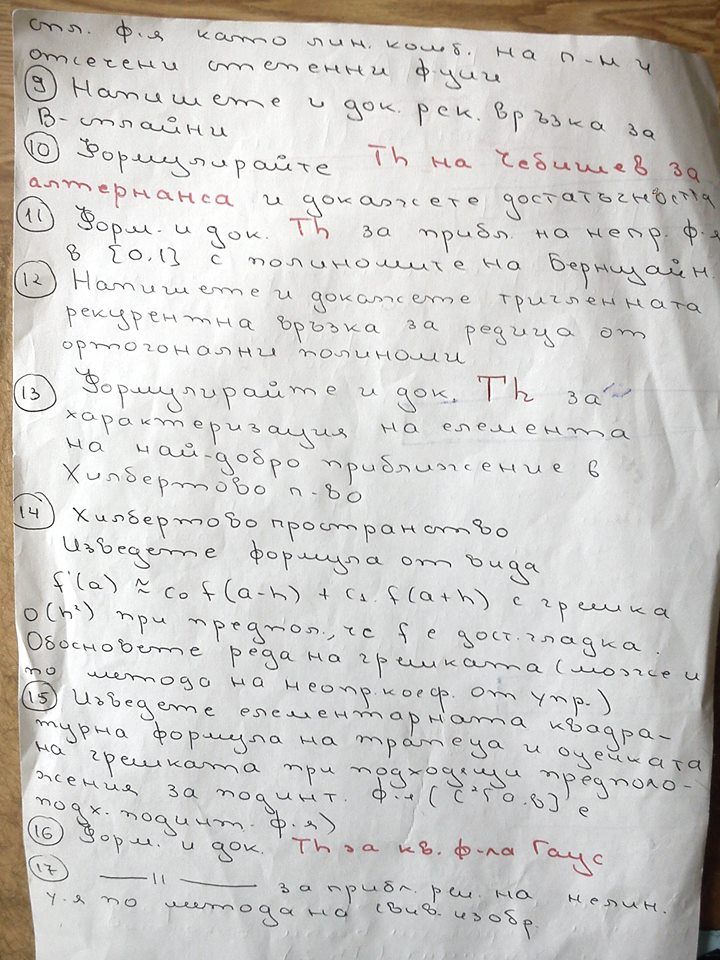 спл. ф-я като лин. комб. на п-м и
отсечени степенни ф-ции
⑨ Напишете и док. рек. връзка за
В-сплайни
⑩ Формулирайте Th на Чебишев за
алтернанса и докажете достатъчността
⑪ Форм. и док. Th за прибл. на непр. ф-я
в [0,1] с полиномите на Бернщайн.
⑫ Напишете и докажете тричленната
рекурентна връзка за редица от
ортогонални полиноми
⑬ Формулирайте и док. Th за
характеризация на елемента
на най-добро приближение в
Хилбертово п-во
⑭ Хилбертово пространство
Изведете формула от вида
f'(a) ≈ c₀ f(a-h) + c₁. f(a+h) с грешка
O(h²) при предпол., че f е дост. гладка.
Обосновете реда на грешката (може и
по метода на неопр. коеф. от упр.)
⑮ Изведете елементарната квадра-
турна формула на трапеца и оценката
на грешката при подходящи предполо-
жения за подинт. ф-я (C²[a,b] е
подх. подинт. ф-я)
⑯ Форм. и док. Th за кв. ф-ла Гаус
⑰ —— 11 —— за прибл. реш. на нелин.
у-я по метода на свив. изобр.